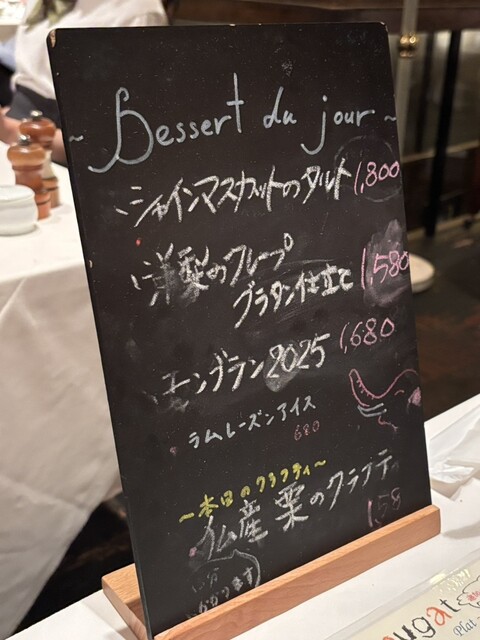 ~ Dessert du jour ~
シャインマスカットのタルト 1,800
洋梨のクレープ
グラタン仕立て 1,580
モンブラン2025 1,680
ラムレーズンアイス
680
~本日のクラフティ~
仏産 栗のクラフティ
1,58
かかります
Plat